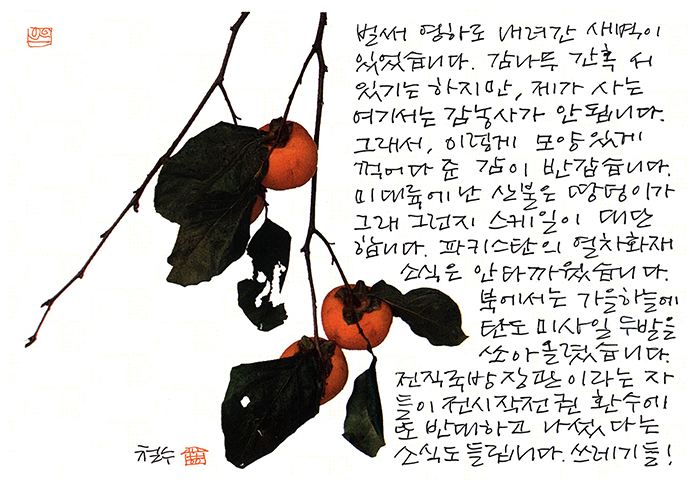 벌써 영하로 내려간 새벽이
있었습니다. 감나무 간혹 서
있기는 하지만, 제가 사는
여기서는 감농사가 안 됩니다.
그래서, 이렇게 모양있게
꺽어다 준 감이 반갑습니다.
미대륙에 난 산불은 땅덩이가
그래 그런지 스케일이 대단
합니다. 파키스탄의 열차화재
소식은 안타까웠습니다.
북에서는 가을하늘에
탄도미사일 두발을
쏘아올렸습니다.
전직국방장관이라는 자
들이 전시작전권 환수에
또 반대하고 나섰다는
소식도 들립니다. 쓰레기들!
철수